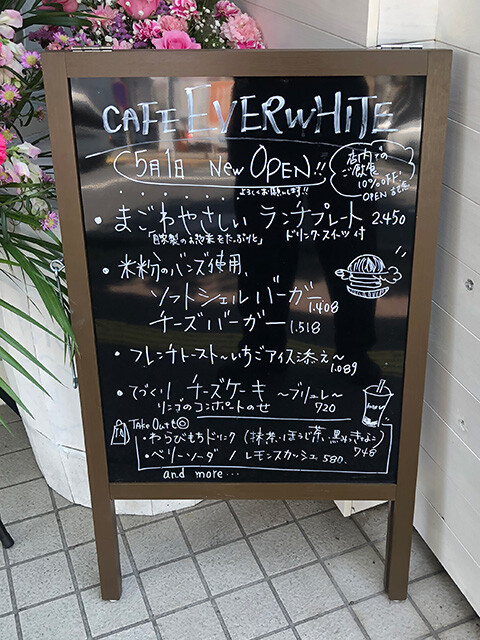 CAFE EVERWHITE
5月1日 NEW OPEN!!
よろしくお願いします!!
店内での
ご飲食
10%OFF!
OPEN記念
・まごわやさしい ランチプレート 2.450
「自家製のお惣菜をたっぷりと」 ドリンク・スイーツ付
・米粉のバンズ使用、
ソフトシェルバーガー 1.408
チーズバーガー 1.518
・フレンチトースト~いちごアイス添え~ 1.089
・てづくり チーズケーキ ~ブリュレ~
リンゴのコンポートのせ 720
Take Out◎
・わらびもちドリンク (抹茶・ほうじ茶・黒みつきなこ) 748
・ベリーソーダ / レモンスカッシュ 580.
and more...